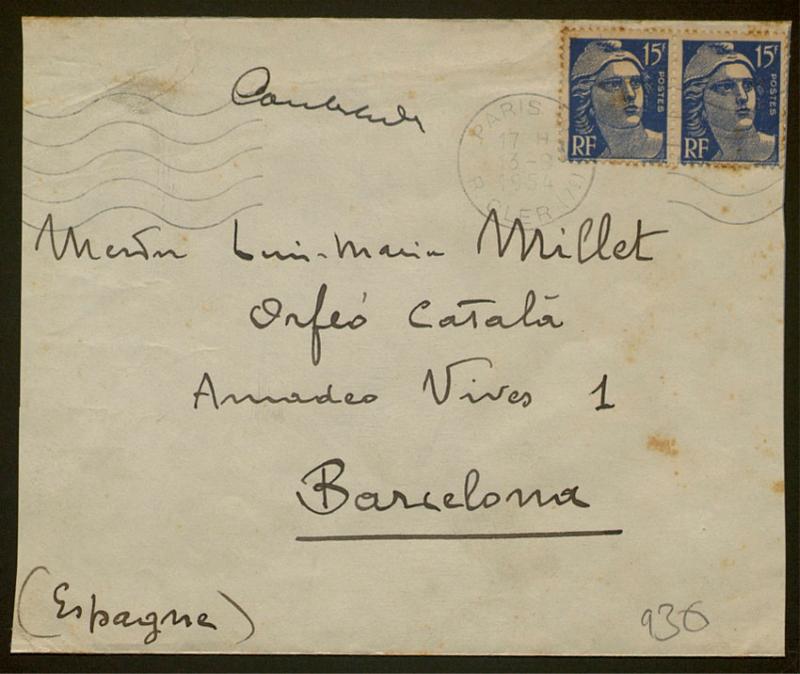 15F POSTES RF
15F POSTES RF
PARIS
17 H
13-9
1954
R. CLER (7e)
Luis-Maria Millet
Orfeó Català
Amadeo Vives 1
Barcelona
(Espagne)
936